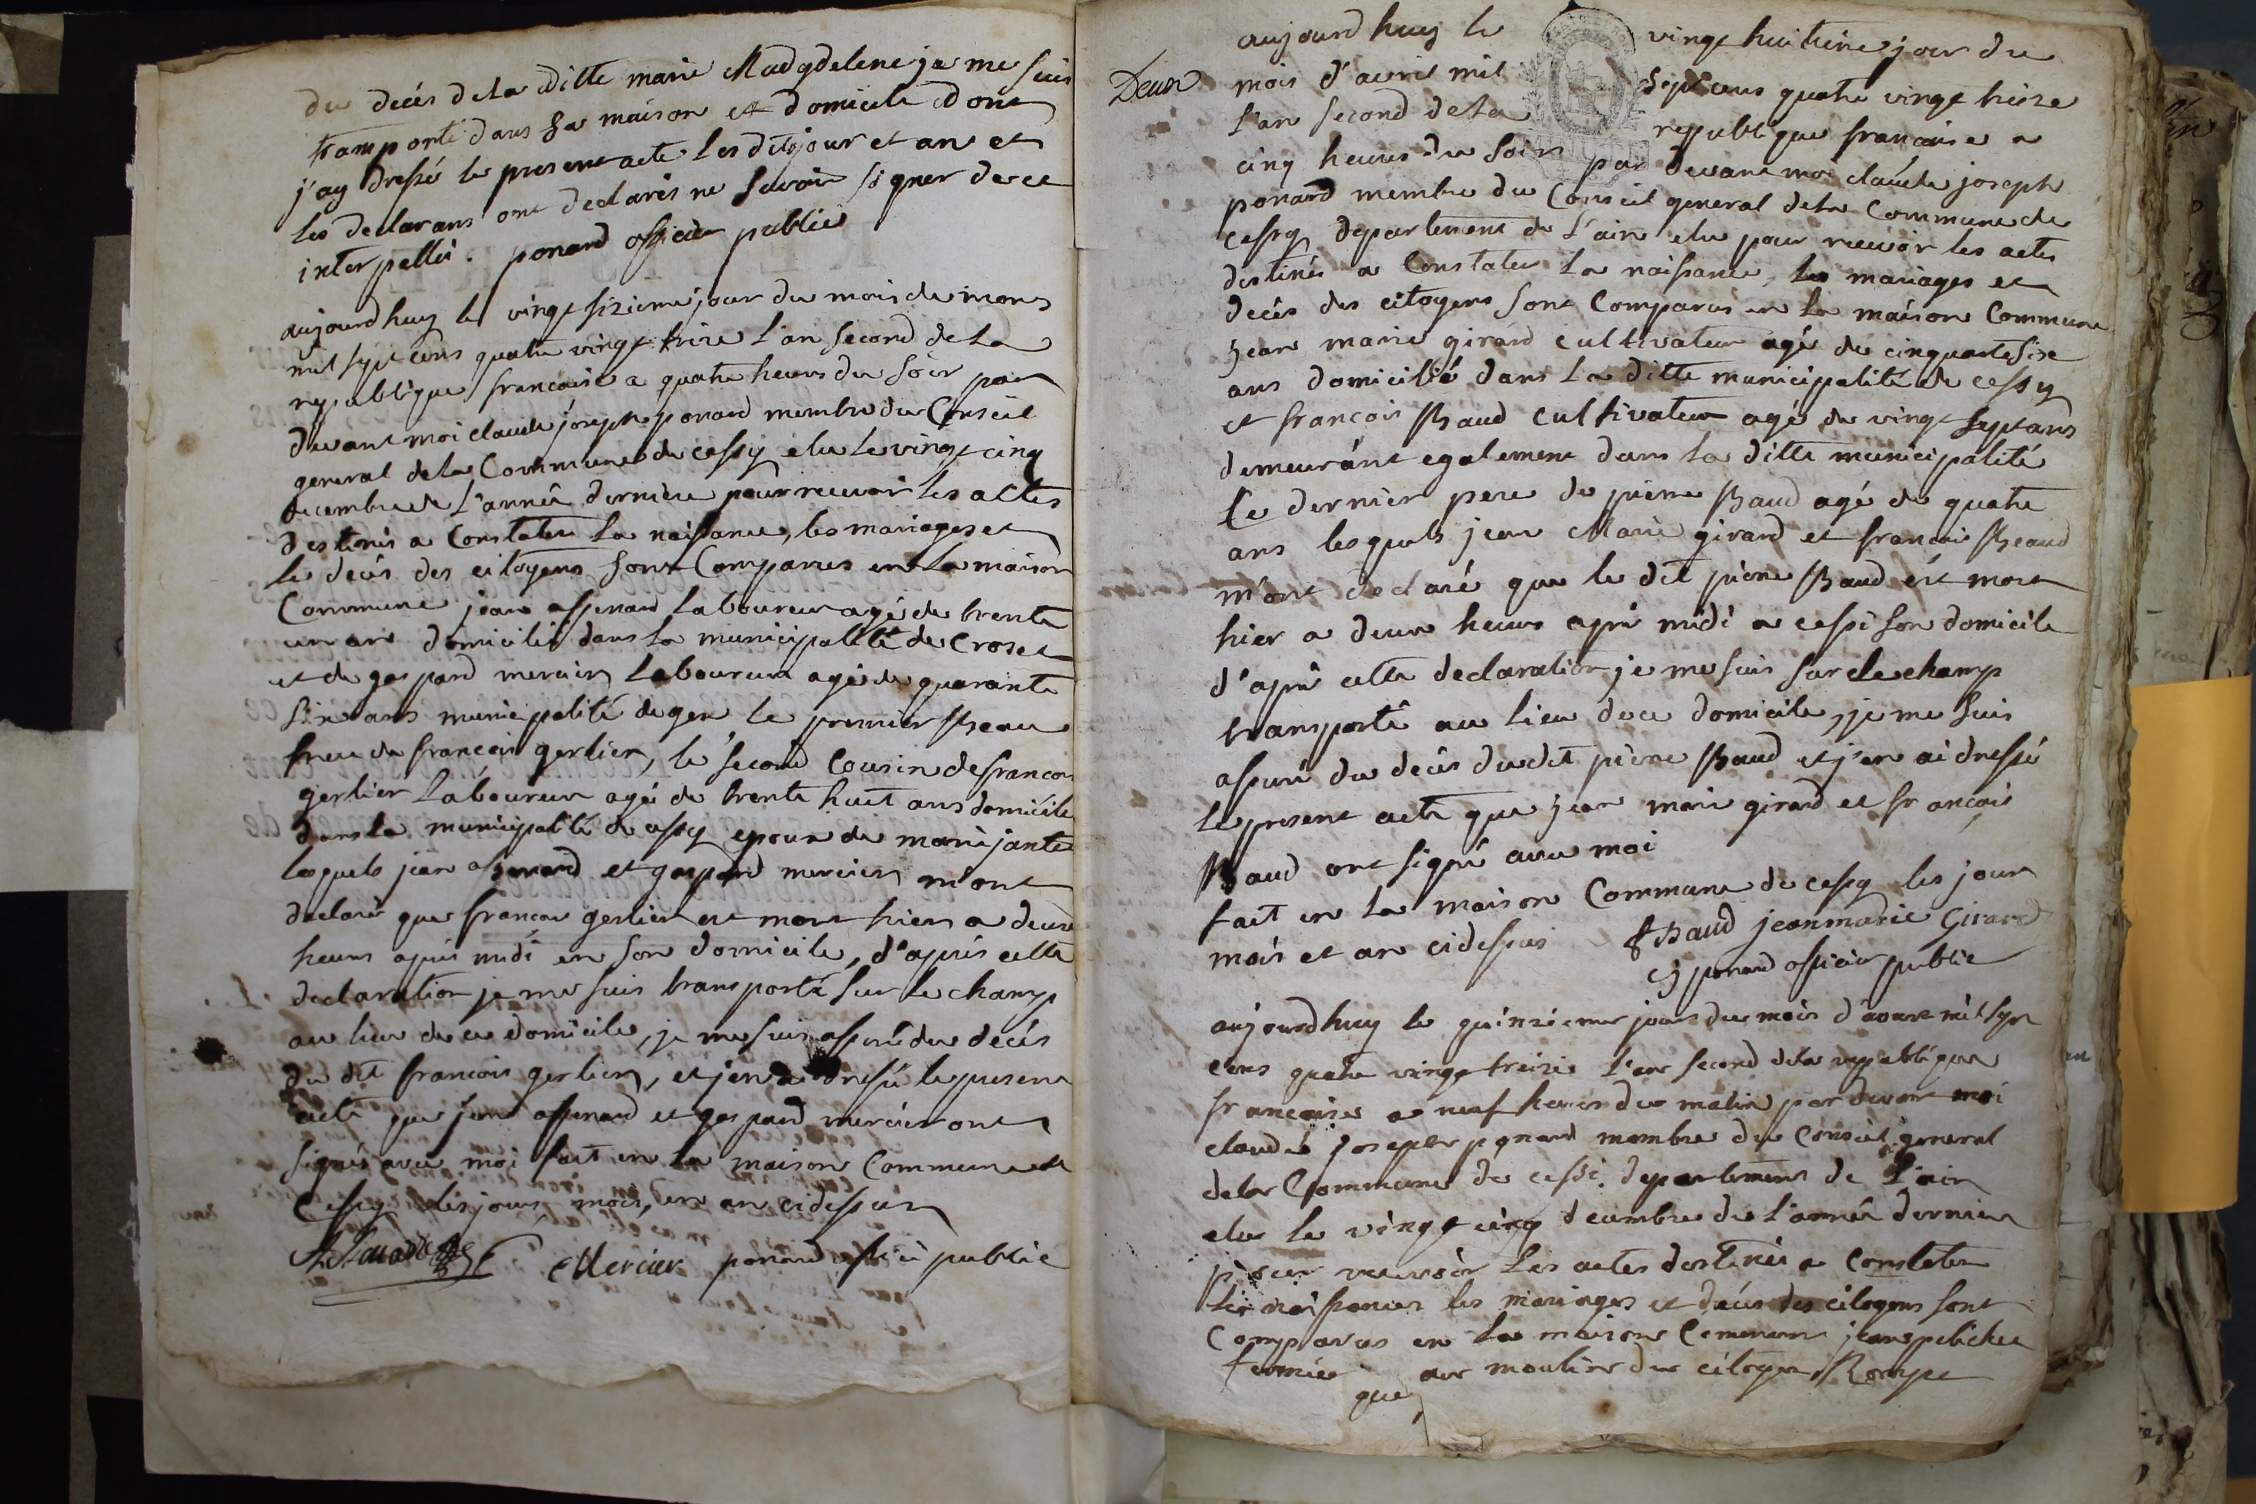 du decés dela ditte marie Madgdelene je me suis
transporté dans sa maison et domicile dont
j'ay dressé le present acte les dits jour et an et
les declarans ont declarés ne savoir signer de ce
interpellés. ponard officier public
aujourdhuy le vingt sixieme jour du mois de mars
mil sept cens quatre vingt treize l'an second dela
republique francaise a quatre heures du soir par
devant moi claude joseph ponard membre du Conseil
general dela Commune de cessy elu le vingt cinq
decembre de l'année derniere pour recevoir les actes
destinés a Constater la naissance, les mariages et
le decés des citoyens sont Comparus en la maison
Commune jean assenard laboureur agé de trente
un ans domicilié dans la municipalité de Croset
et de gaspard mercier laboureur agé de quarante
six ans municipalité de gex le premier Beau
frere de francois gerlier, le second Cousin de francois
gerlier laboureur agé de trente huit ans domicilié
dans la municipalité de cessy epoux de marie jante
lesquels jean assenard et gaspard mercier m'ont
declaré que francois gerlier est mort hier a deux
heures aprés midi en son domicile, d'aprés cette
declaration je me suis transporté sur le champ
au lieu de ce domicile, je me suis assuré du decés
du dit francois gerlier, et j'en ai dressé le present
acte que jean assenard et gaspard mercier ont
signés avec moi fait en la maison Commune de
Cessy les jour, mois, en an cidessus
Mercier ponard officier public
aujourdhuy le vingt huitieme jour du
Deux
mois d'avril mil sept cens quatre vingt treize
l'an second de la republique francaise a
cinq heures du soir par devant moi claude joseph
ponard membre du Conseil general dela Commune de
cessy departement de l'ain elu pour recevoir les actes
destinés a Constater la naissance, les mariages et
decés des citoyens sont Comparus en la maison Commune
jean marie girard cultivateur agé de cinquante six
ans domicilié dans la ditte municipalité de cessy
et francois Baud cultivateur agé de vingt sept ans
demeurant egalement dans la ditte municipalité
le dernier pere de pierre Baud agé de quatre
ans lesquels jean Marie girard et francois Beaud
m'ont declaré que le dit pierre Baud est mort
hier a deux heures aprés midi a cessi son domicile
d'aprés cette declaration je me suis sur le champ
transporté au lieu de ce domicile, je me suis
assuré du decés du dit pierre Baud et j'en ai dressé
le present acte que jean marie girard et francois
Baud ont signé avec moi
fait en la maison Commune de cessy les jour
mois et an cidessus f Baud jeanmarie Girard
cj ponard officier public
aujourdhuy le quinzieme jour du mois d'aoust mil sept
cens quatre vingt treize l'an second dela republique
francaise a neuf heures du matin par devant moi
claude joseph ponard membre du Conseil general
dela Commune de cessi departement de l'ain
elu le vingt cinq decembre de l'année derniere
pour recevoir les actes destinés a Constater
les naissances les mariages et decés des citoyens sont
Comparus en la maison Commune jean pelichet
fermier au moulin du citoyen Rompe
que